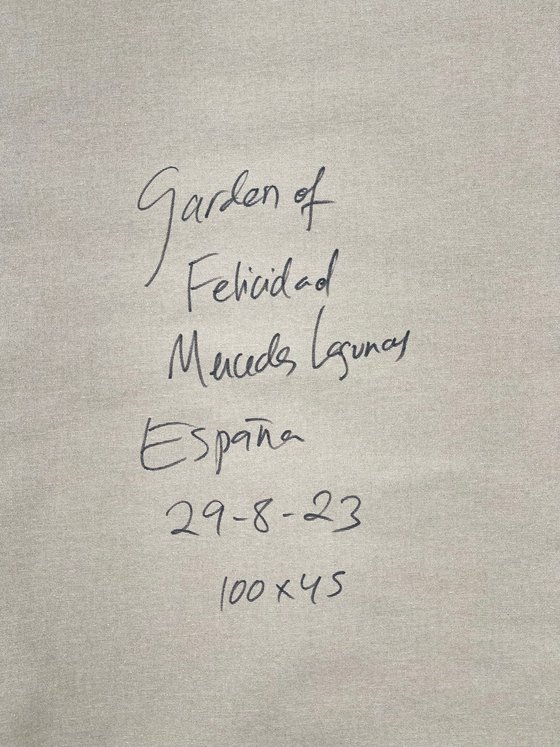 Garden of
Felicidad
Mercedes Lagunas
España
29-8-23
100x45